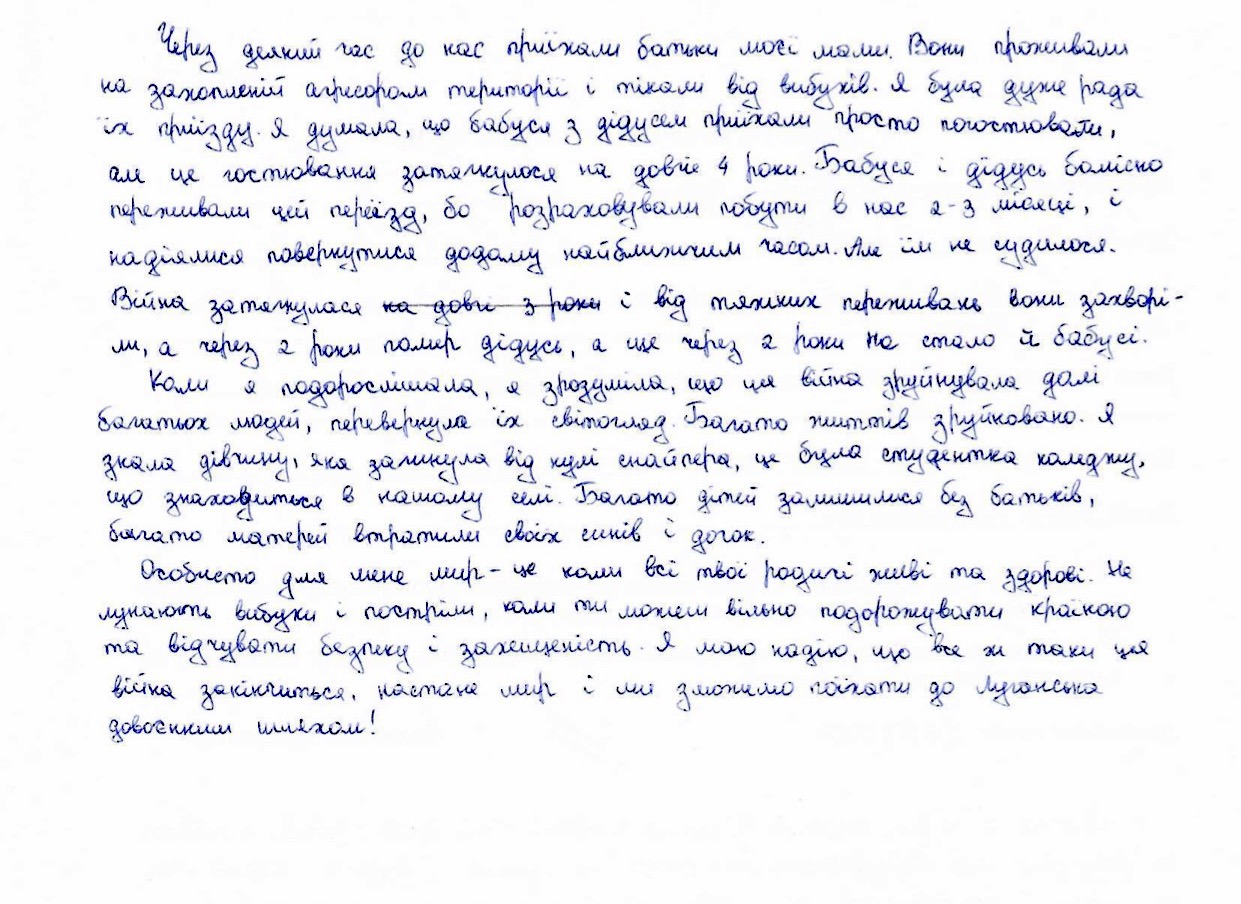 Через деякий час до нас приїхали батьки моєї мами. Вони проживали
на захопленій агресором території і тікали від вибухів. Я була дуже рада
їх приїзду. Я думала, що бабуся з дідусем приїхали просто погостювати,
але це гостювання затягнулося на довгіе 4 роки. Бабуся і дідусь болісно
переживали цей переїзд, бо розраховували побути в нас 2-3 місяці, і
надіялися повернутися додому найближчим часом. Але їм не судилося.
Війна затягнулася на довгі 3 роки і від тяжких переживань вони захворі-
ли, а через 2 роки помер дідусь, а ще через 2 роки не стало й бабусі.
Коли я подорослішала, я зрозуміла, що ця війна зруйнувала долі
багатьох людей, перевернула їх світогляд. Багато життів зруйновано. Я
знала дівчину, яка загинула від кулі снайпера, це була студентка коледжу,
що знаходиться в нашому селі. Багато дітей залишилися без батьків,
багато матерей втратили своїх синів і дочок.
Особисто для мене мир - це коли всі твої родичі живі та здорові. Не
лунають вибухи і постріли, коли ти можеш вільно подорожувати країною
та відчувати безпеку і захищеність. Я маю надію, що все ж таки ця
війна закінчиться, настане мир і ми зможемо поїхати до Луганська
довоєнним шляхом!